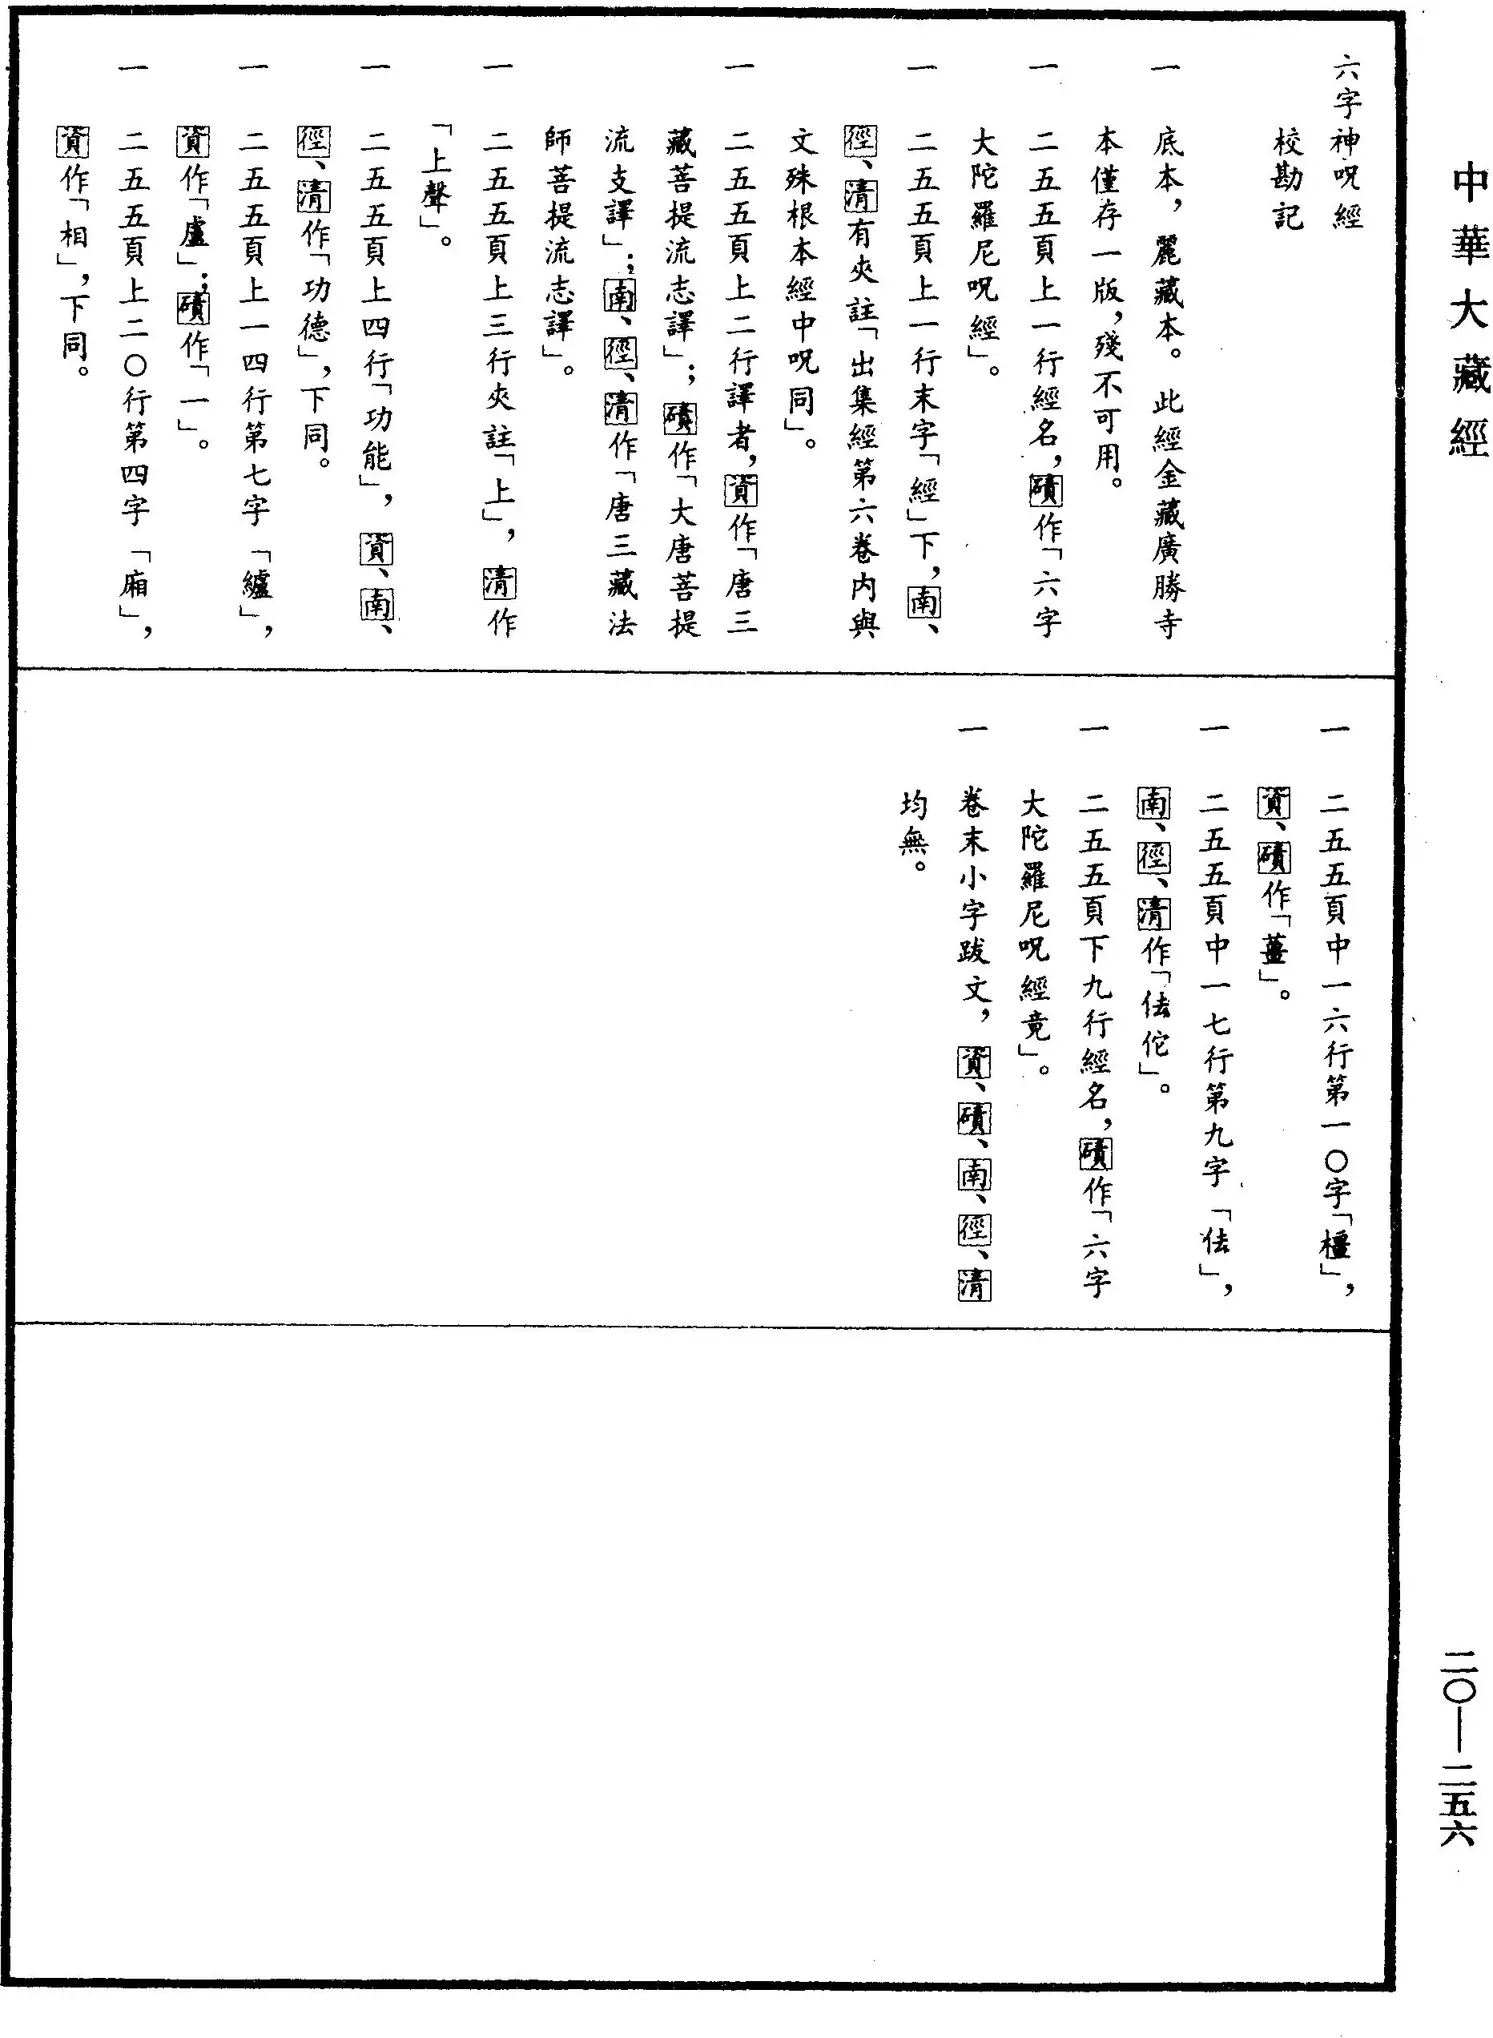 中華大藏經
六字神呪經
校勘記
一　底本，麗藏本。此經金藏廣勝寺
本僅存一版，殘不可用。
一　二五五頁上一行經名，磧作「六字
大陀羅尼呪經」。
一　二五五頁上一行末字「經」下，南、
徑、清有夾註「出集經第六卷内與
文殊根本經中呪同」。
一　二五五頁上二行譯者，資作「唐三
藏菩提流志譯」；磧作「大唐菩提
流支譯」；南、徑、清作「唐三藏法
師菩提流志譯」。
一　二五五頁上三行夾註「上」，清作
「上聲」。
一　二五五頁上四行「功能」，資、南、
徑、清作「功德」，下同。
一　二五五頁上一四行第七字「鑪」，
資作「盧」；磧作「一」。
一　二五五頁上二〇行第四字「廂」，
資作「相」，下同。
一　二五五頁中一六行第一〇字「橿」，
資、磧作「薑」。
一　二五五頁中一七行第九字「佉」，
南、徑、清作「佉佗」。
一　二五五頁下九行經名，磧作「六字
大陀羅尼呪經竟」。
一　卷末小字跋文，資、磧、南、徑、清
均無。
二〇—二五六